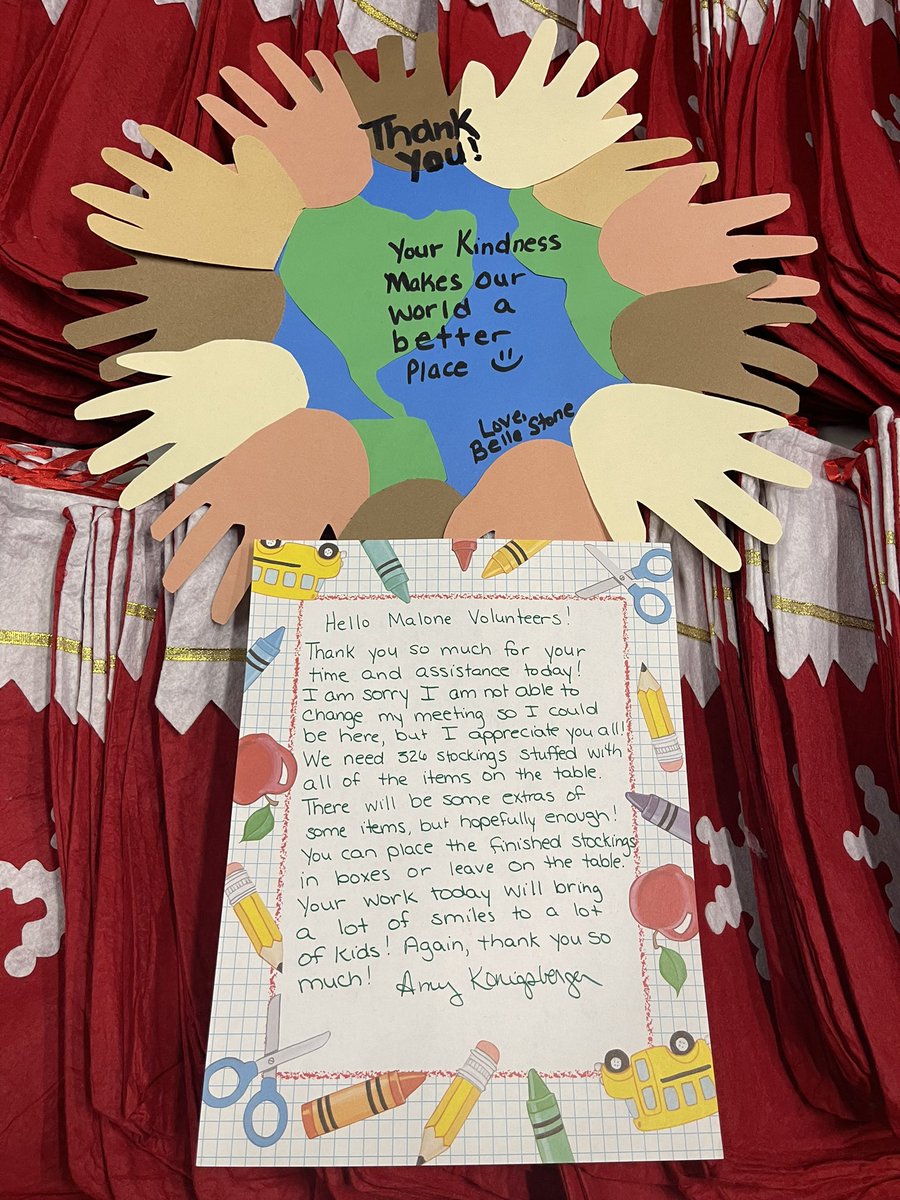 Thank
you!
Your Kindness
Makes our
world a
better
Place
Love,
Belle Stone
Hello Malone Volunteers!
Thank you so much for your
time and assistance today!
I am sorry I am not able to
change my meeting so I could
be here, but I appreciate you all!
We need 326 stockings stuffed with
all of the items on the table.
There will be some extras of
some items, but hopefully enough!
You can place the finished stockings
in boxes or leave on the table.
Your work today will bring
a lot of smiles to a lot
of kids! Again, thank you so
much! Amy Konigsberger